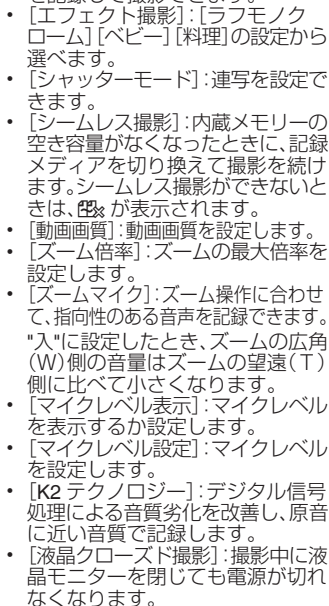 を記録して撮影できます。
• [エフェクト撮影]:[ラフモノク
ローム][ベビー][料理]の設定から
選べます。
• [シャッターモード]:連写を設定で
きます。
• [シームレス撮影]:内蔵メモリーの
空き容量がなくなったときに、記録
メディアを切り換えて撮影を続け
ます。シームレス撮影ができないと
きは、 が表示されます。
• [動画画質]:動画画質を設定します。
• [ズーム倍率]:ズームの最大倍率を
設定します。
• [ズームマイク]:ズーム操作に合わせ
て、指向性のある音声を記録できます。
"入"に設定したとき、ズームの広角
(W)側の音量はズームの望遠(T)
側に比べて小さくなります。
• [マイクレベル表示]:マイクレベル
を表示するか設定します。
• [マイクレベル設定]:マイクレベル
を設定します。
• [K2 テクノロジー]:デジタル信号
処理による音質劣化を改善し、原音
に近い音質で記録します。
• [液晶クローズド撮影]:撮影中に液
晶モニターを閉じても電源が切れ
なくなります。